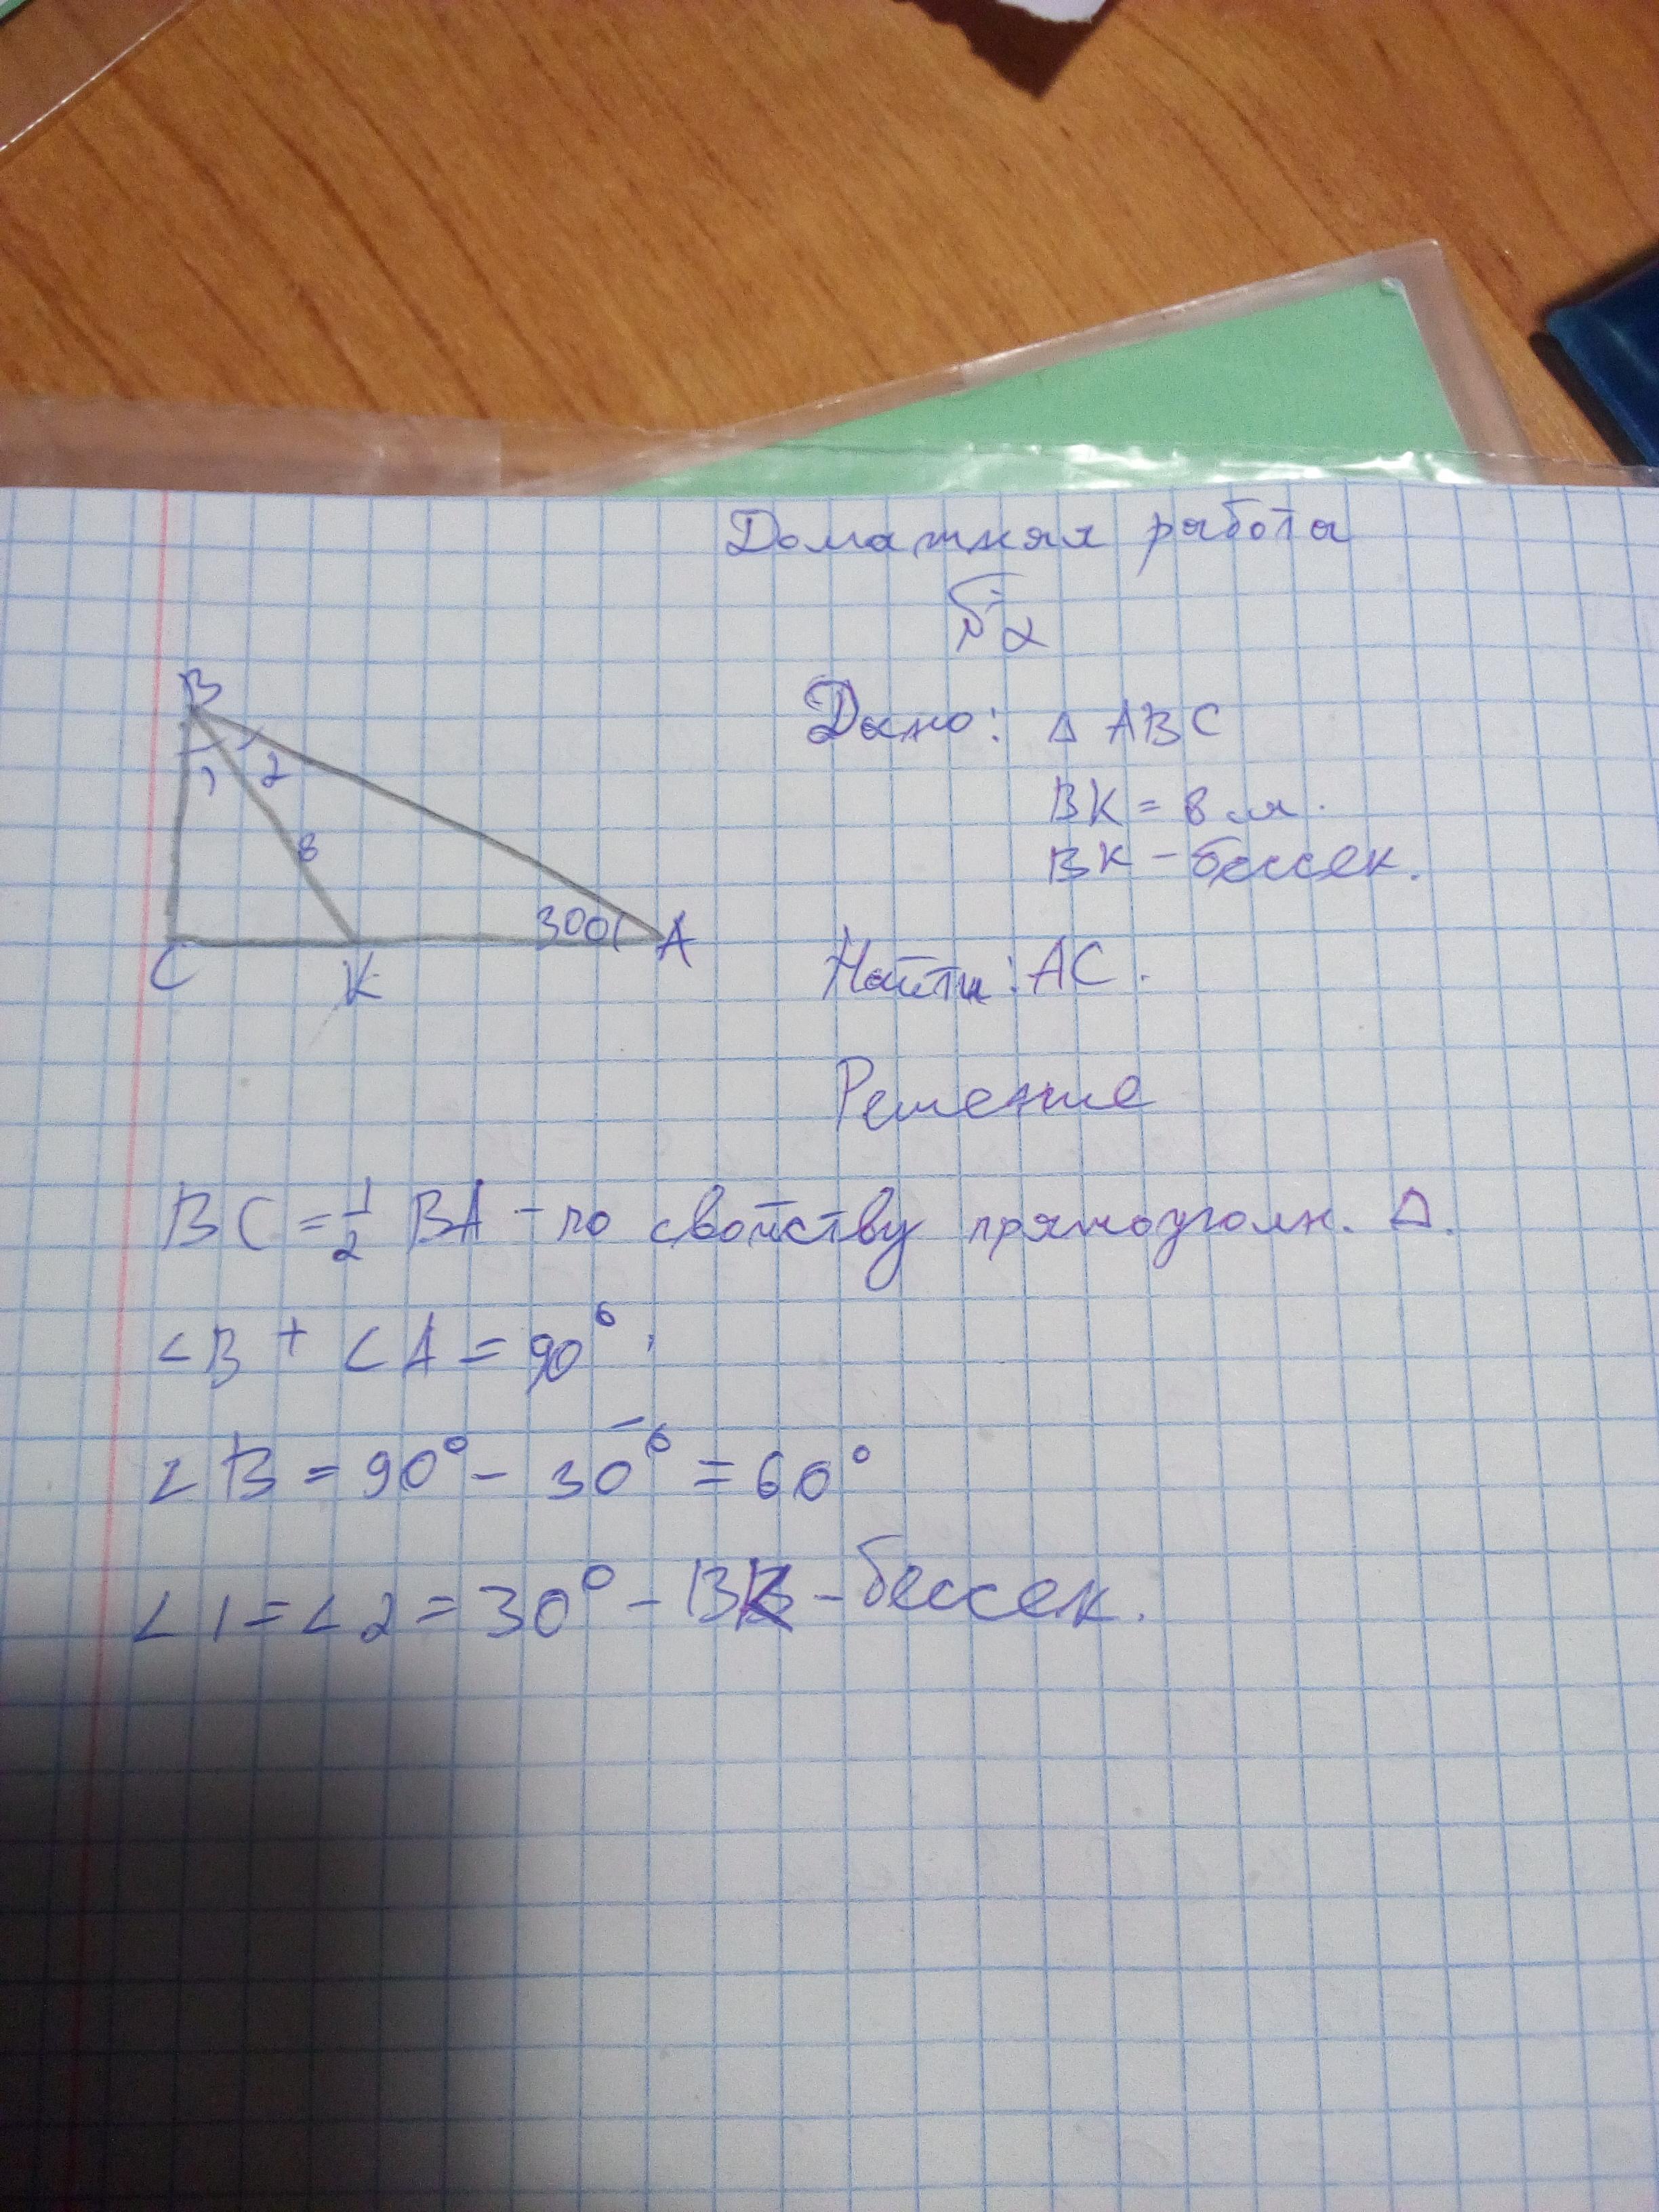 Домашняя работа
№2
B
1 2
8
30° A
C K
Дано: △ ABC
BK = 8 м.
BK - бессек.
Найти: AC.
Решение
BC = 1/2 BA - по свойству прямоуголн. △.
∠B + ∠A = 90°.
∠B = 90° - 30° = 60°
∠1 = ∠2 = 30° - BK - бессек.